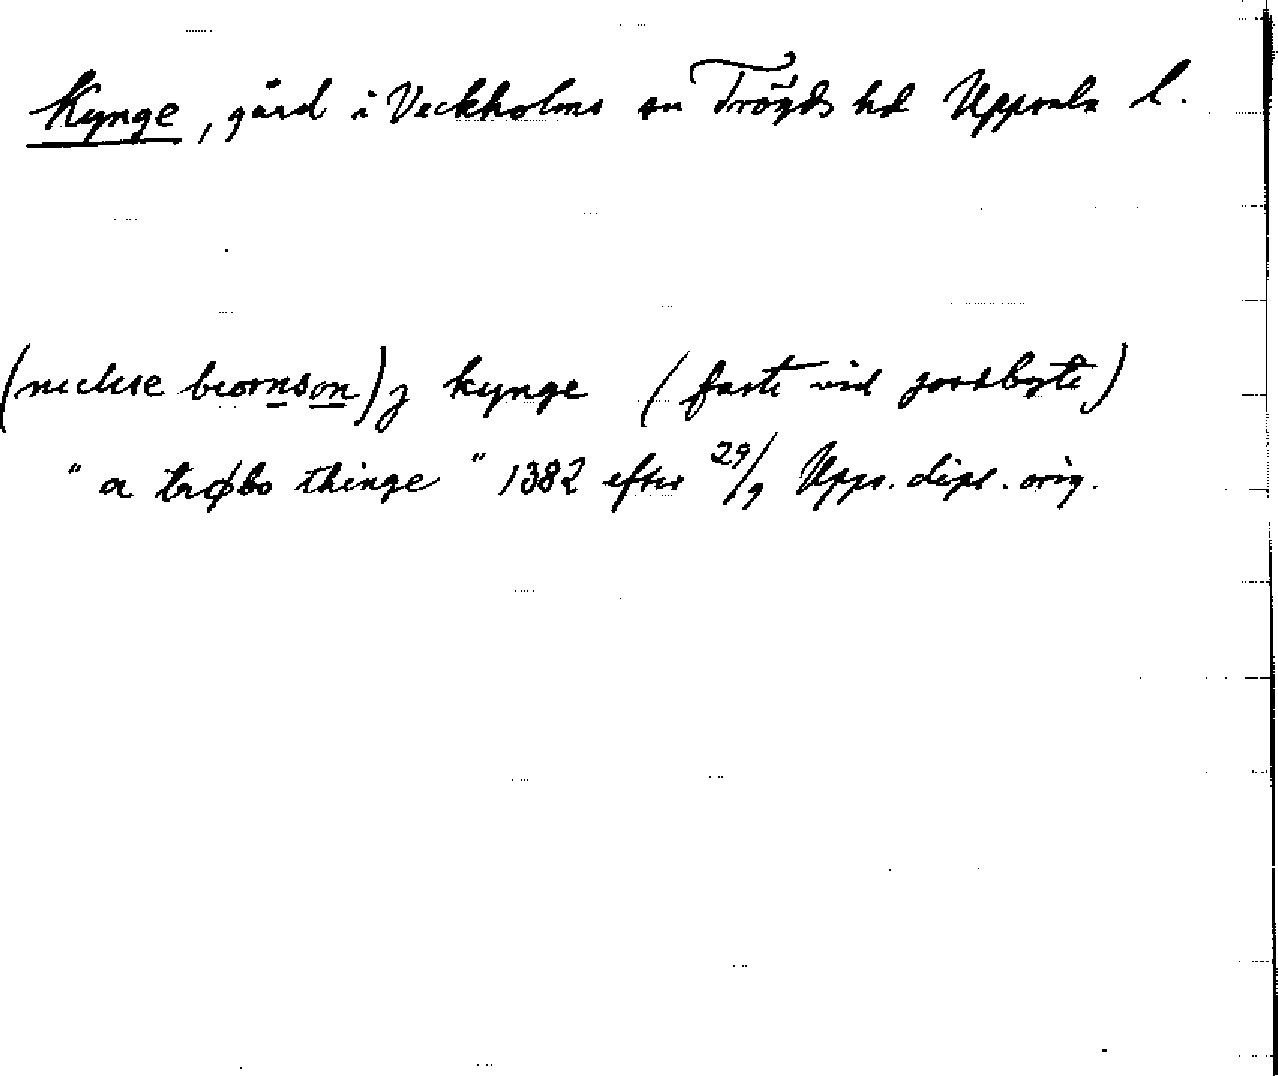 Kynge, gård i Veckholms sn Trögds hd Uppsala l.
(niclisse biornson) j kynge (faste vid jordbyte)
" a trøbo thinge " 1382 efter 29/9 Upps. dipl. orig.